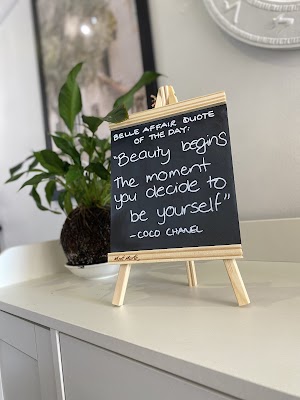 BELLE AFFAIR QUOTE
OF THE DAY:
"Beauty begins
The moment
you decide to
be yourself"
- COCO CHANEL